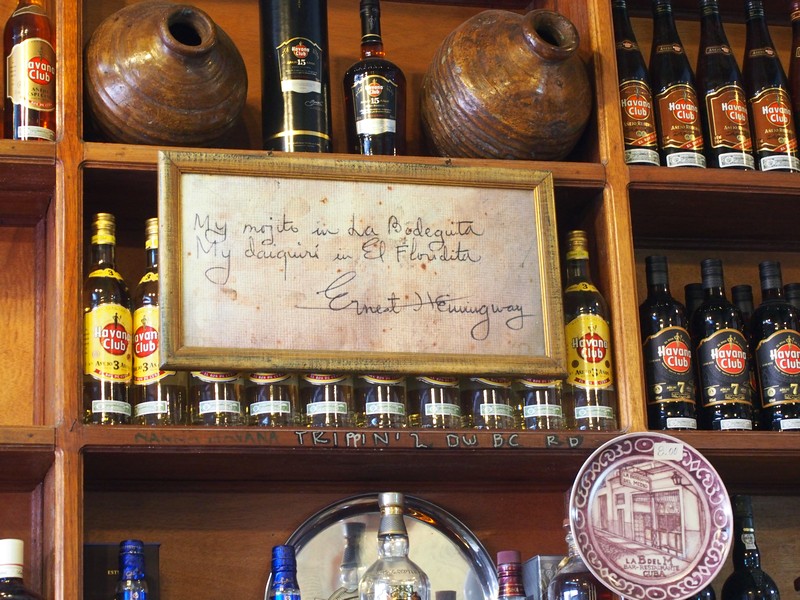 Havana Club
Havana Club
15
15
Havana Club
Havana Club
Havana Club
Havana Club
My mojito in La Bodeguita
My daiquiri in El Floridita
Ernest Hemingway
Havana Club
AÑEJO 3 AÑOS
Havana Club
Havana Club
Havana Club
7
Havana Club
7
Havana Club
7
TRIPPIN' 2 DW BC RD
8.00
LA B DEL M
BAR-RESTAURANTE
CUBA